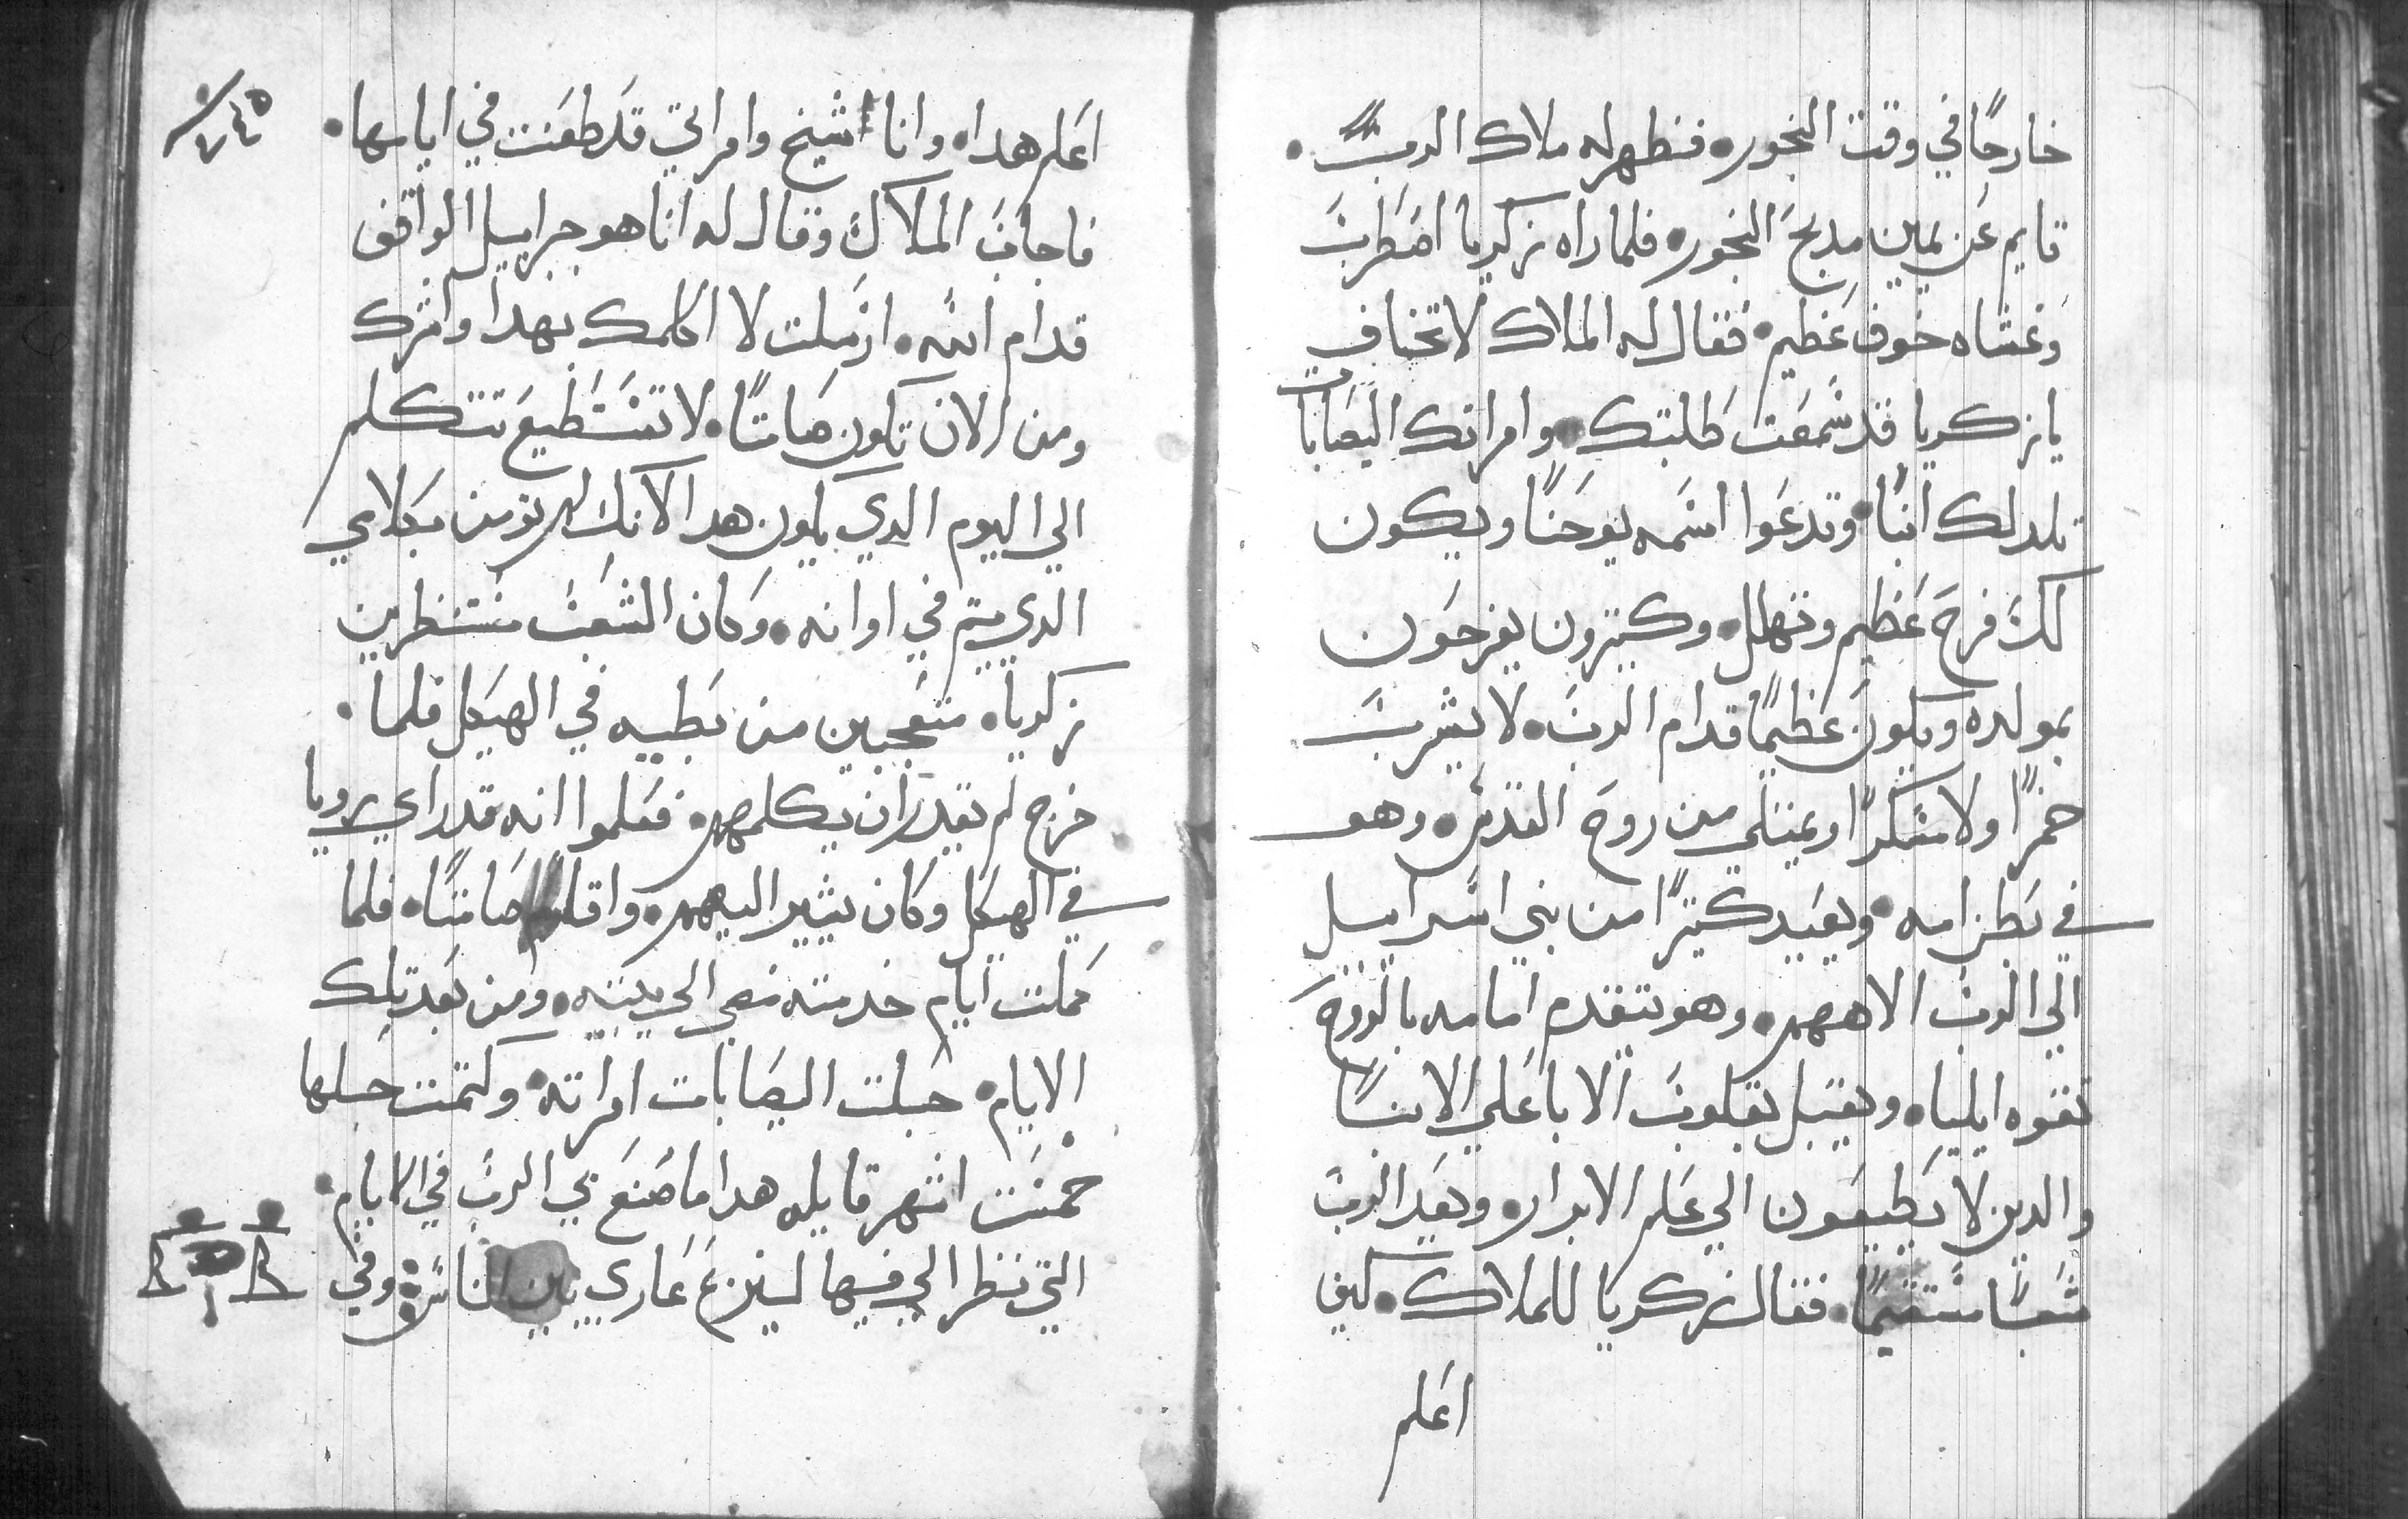 خارجًا في وقت البخور. فظهر له ملاك الربّ.
قايم عن يمين مدبح البخور. فلما راه زكريا اضطرب
وغشاه خوف عظيم. فقال له الملاك لا تخاف
يا زكريا قد سمعت طلبتك. وامراتك اليصابات
تلد لك ابنًا. وتدعوا اسمه يوحنا ويكون
لك فرح عظيم وتهلل. وكتيرون يفرحون
بمولده ويكون عظيمًا قدام الرب. لا يشرب
خمرًا ولا مسكرًا ويمتلي من روح القدس. وهو
في بطن امه. ويعيد كتيرًا من بني اسراييل
الي الرب الاههم. وهو يتقدم امامه بالروح
بقوه ايلياه. ويقبل بقلوب الابا علي الابنا
والدين لا يطيعون الي علم الابرار. ويعد الرب
شعبًا مستقيمًا. فقال زكريا للملاك. كيف
اعلم
٢٤٥
اعلم هدا. وانا شيخ وامراتي قد طعنت في ايامها.
فاجاب الملاك وقال له انا هو جبراييل الواقف
قدام الله. ارسلت لا اكلمك بهدا وابشرك
ومن الان تكون صامتًا. لا تستطيع تتكلم
الي اليوم الدي يكون هدا لانك لم تومن بكلامي
الدي يتم في اوانه. وكان الشعب منتظرين
زكريا. متعجبين من بطيه في الهيكل فلما.
خرج لم يقدر ان يكلمهم. فعلموا انه قد راي رويا
في الهيكل وكان يشير اليهم. واقام صامتًا. فلما
كملت ايام خدمته مضي الي بيته. ومن بعد تلك
الايام. حبلت اليصابات امراته. وكتمت حبلها
خمست اشهر قايله هدا ما صنع بي الرب في الايام.
التي نظر الي فيها لينزع عاري بين الناس وفي